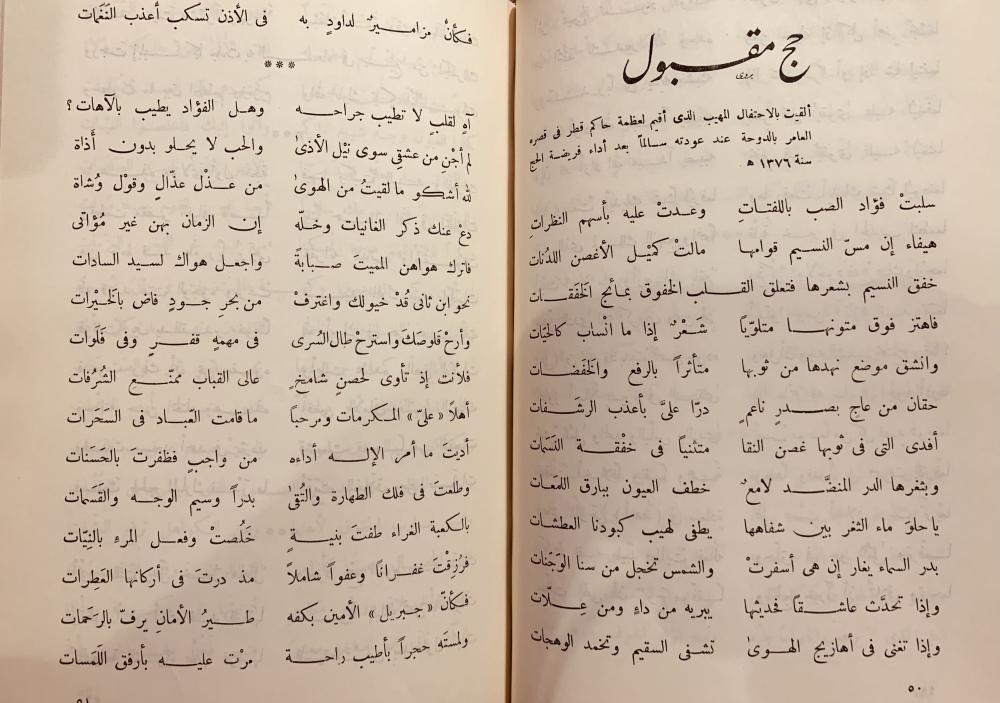 حج مقبول
مبرور
ألقيت بالاحتفال المهيب الذى أقيم لعظمة حاكم قطر فى قصره
العامر بالدوحة عند عودته سالماً بعد أداء فريضة الحج
سنة ١٣٧٦ ه
سلبتْ فؤاد الصب باللفتاتِ وعدتْ عليه بأسهم النظراتِ
هيفاء إن مسّ النسيم قوامها مالتْ كميْل الأغصن اللدْنات
خفق النسيم بشعرها فتعلق القلب الخفوق بمائج الخَفَقات
فاهتز فوق متونها متلويّا شَعْرٌ إذا ما انْساب كالحيّات
وانشق موضع نهدها من ثوبها متأثراً بالرفع والخَفَضات
حقان من عاجٍ بصدرٍ ناعمٍ درّا علىَّ بأعذب الرشَفات
أفدى التى فى ثوبها غصن النقا متثنياً فى خفْقة النَسَمات
وبثغرها الدر المنضَّد لامعٌ خطف العيون ببارق اللمَعات
يا حلوَ ماء الثغر بين شفاهها يطفى لهيب كبودنا العطشات
بدر السماء يغار إن هى أسفرتْ والشمس تخجل من سنا الوَجَنات
وإذا تحدَّث عاشقاً فحديثها يبريه من داءٍ ومن عِلّات
وإذا تغنى فى أهازيج الهوىٰ تشفى السقيم وتخمد الوهجات
٥٠
فكأنّ مزاميرٌ لداودٍ به فى الأذن تسكب أعذب النَغَمات
***
آهٍ لقلبٍ لا تطيب جراحه وهل الفؤاد يطيب بالآهات ؟
لم أجْنِ من عشقٍ سوى نَيْل الأذىٰ والحب لا يحلو بدون أَذاة
لله أشكو ما لقيتُ من الهوىٰ من عذْل عذّالٍ وقوْل وُشاة
دعْ عنك ذكر الغانيات وخلّه إن الزمان بهن غير مؤاتى
فاترك هواهن المميتَ صبابةً واجعل هواك لسيد السادات
نحو ابن ثانى قُدْ خيولك واغترفْ من بحرِ جودٍ فاض بالخَيْرات
وأرحْ قلوصَكَ واسترحْ طال السُرى فى مهمهٍ قفرٍ وفى فَلَوات
فلأنت إذ تأوى لحصنٍ شامخٍ عالى القباب ممنّع الشُرُفات
أهلاً « علىّ » المكرمات ومرحباً ما قامت العبّاد فى السَحَرات
أديتَ ما أمر الإله أداءه من واجبٍ فظفرتَ بالحَسَنات
وطلعتَ فى فلك الطهارة والتُقىٰ بدراً وسيم الوجه والقَسَمات
بالكعبة الغراء طفتَ بنيةٍ خَلُصتْ وفعل المرءِ بالنِيّات
فرُزِقْتَ غفراناً وعفواً شاملاً مذ درتَ فى أركانها العَطِرات
فكأنّ « جبريل » الأمين بكفه طيرُ الأمانِ يرفّ بالرَحمات
ولمستَه حجراً بأطيب راحة مرتْ عليه بأرفق اللَمَسات